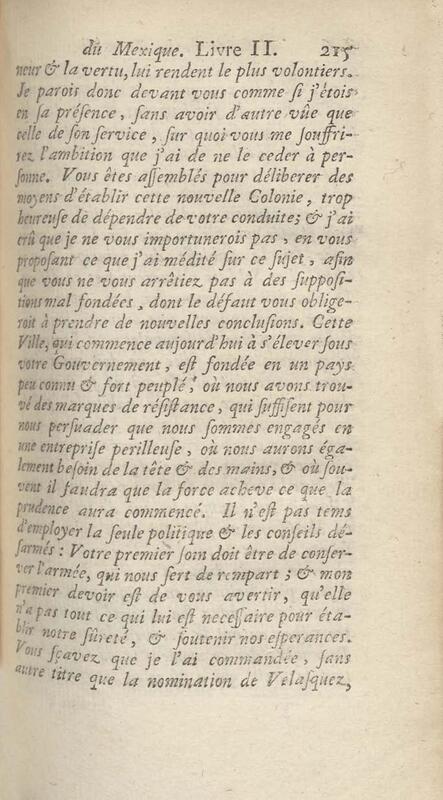 du Mexique. Livre II. 215
neur & la vertu, lui rendent le plus volontiers.
Je parois donc devant vous comme si j'étois
en sa présence, sans avoir d'autre vûe que
celle de son service, sur quoi vous me souffri-
rez l'ambition que j'ai de ne le ceder à per-
sonne. Vous êtes assemblés pour déliberer des
moyens d'établir cette nouvelle Colonie, trop
heureuse de dépendre de votre conduite; & j'ai
crû que je ne vous importunerois pas, en vous
proposant ce que j'ai médité sur ce sujet, afin
que vous ne vous arrêtiez pas à des supposi-
tions mal fondées, dont le défaut vous oblige-
roit à prendre de nouvelles conclusions. Cette
Ville, qui commence aujourd'hui à s'élever sous
votre Gouvernement, est fondée en un pays
peu connu & fort peuplé, où nous avons trou-
vé des marques de résistance, qui suffisent pour
nous persuader que nous sommes engagés en
une entreprise perilleuse, où nous aurons éga-
lement besoin de la tête & des mains, & où sou-
vent il faudra que la force acheve ce que la
prudence aura commencé. Il n'est pas tems
d'employer la seule politique & les conseils dé-
sarmés: Votre premier soin doit être de conser-
ver l'armée, qui nous sert de rempart; & mon
premier devoir est de vous avertir, qu'elle
n'a pas tout ce qui lui est necessaire pour éta-
blir notre sûreté, & soutenir nos esperances.
Vous sçavez que je l'ai commandée, sans
autre titre que la nomination de Velasquez,